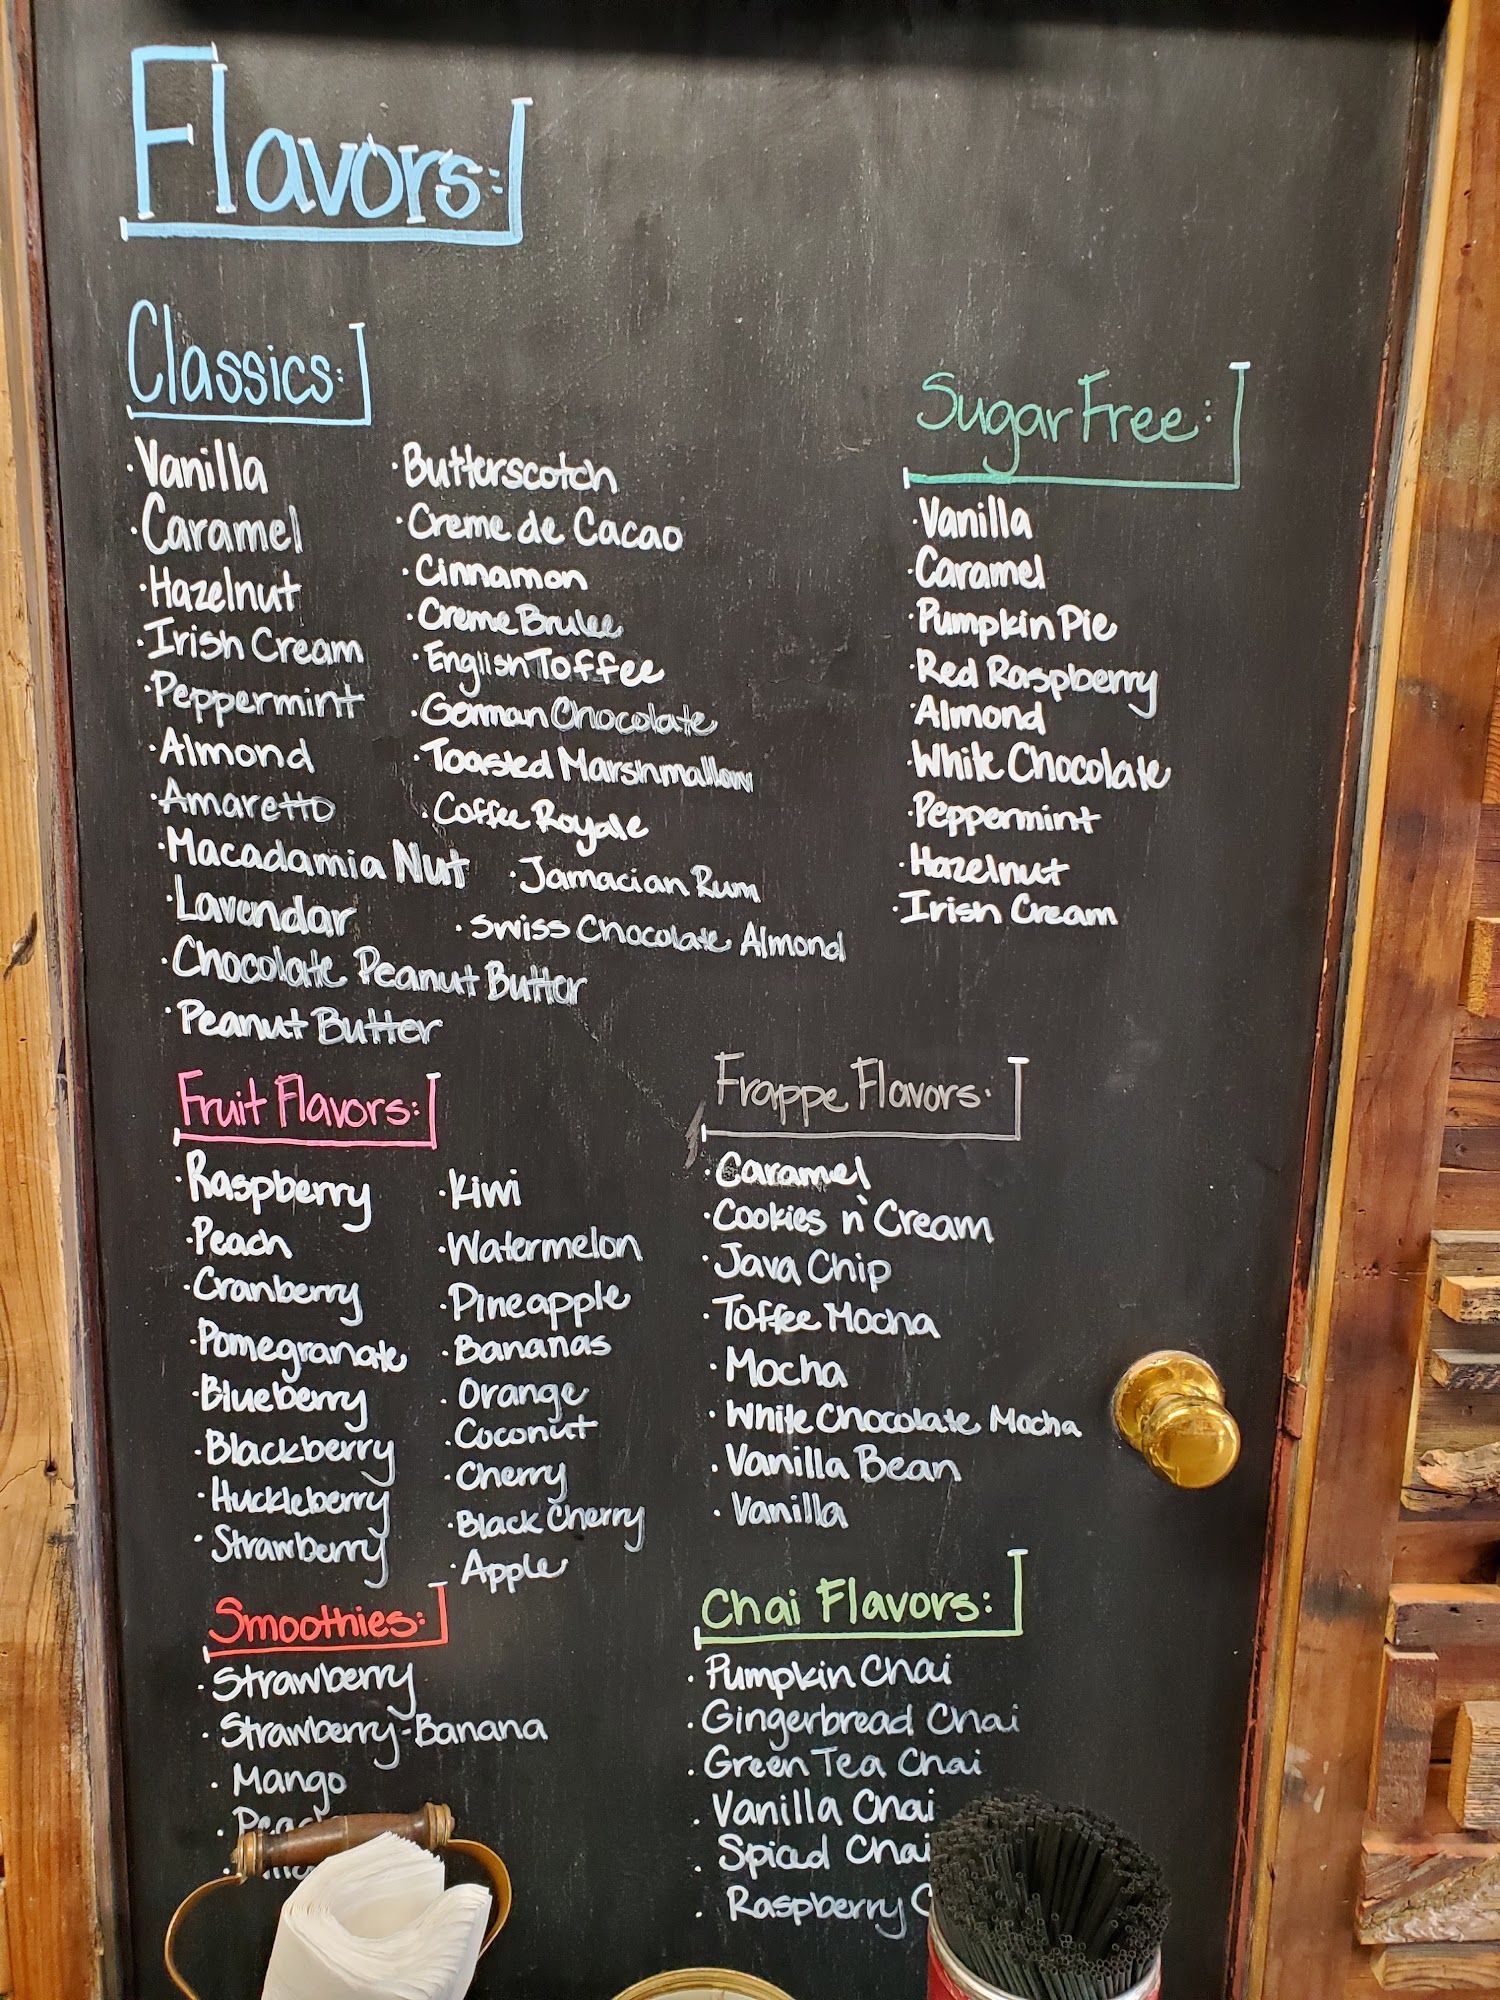 Flavors:
Classics:
·Vanilla
·Caramel
·Hazelnut
·Irish Cream
·Peppermint
·Almond
·Amaretto
·Macadamia Nut
·Lavendar
·Chocolate Peanut Butter
·Peanut Butter
·Butterscotch
·Creme de Cacao
·Cinnamon
·Creme Brulee
·English Toffee
·German Chocolate
·Toasted Marshmallow
·Coffee Royale
·Jamacian Rum
·Swiss Chocolate Almond
Sugar Free:
·Vanilla
·Caramel
·Pumpkin Pie
·Red Raspberry
·Almond
·White Chocolate
·Peppermint
·Hazelnut
·Irish Cream
Fruit Flavors:
·Raspberry
·Peach
·Cranberry
·Pomegranate
·Blueberry
·Blackberry
·Huckleberry
·Strawberry
·Kiwi
·Watermelon
·Pineapple
·Bananas
·Orange
·Coconut
·Cherry
·Black Cherry
·Apple
Frappe Flavors:
·Caramel
·Cookies n' Cream
·Java Chip
·Toffee Mocha
·Mocha
·White Chocolate Mocha
·Vanilla Bean
·Vanilla
Smoothies:
·Strawberry
·Strawberry-Banana
·Mango
Chai Flavors:
·Pumpkin Chai
·Gingerbread Chai
·Green Tea Chai
·Vanilla Chai
·Spiced Chai
·Raspberry